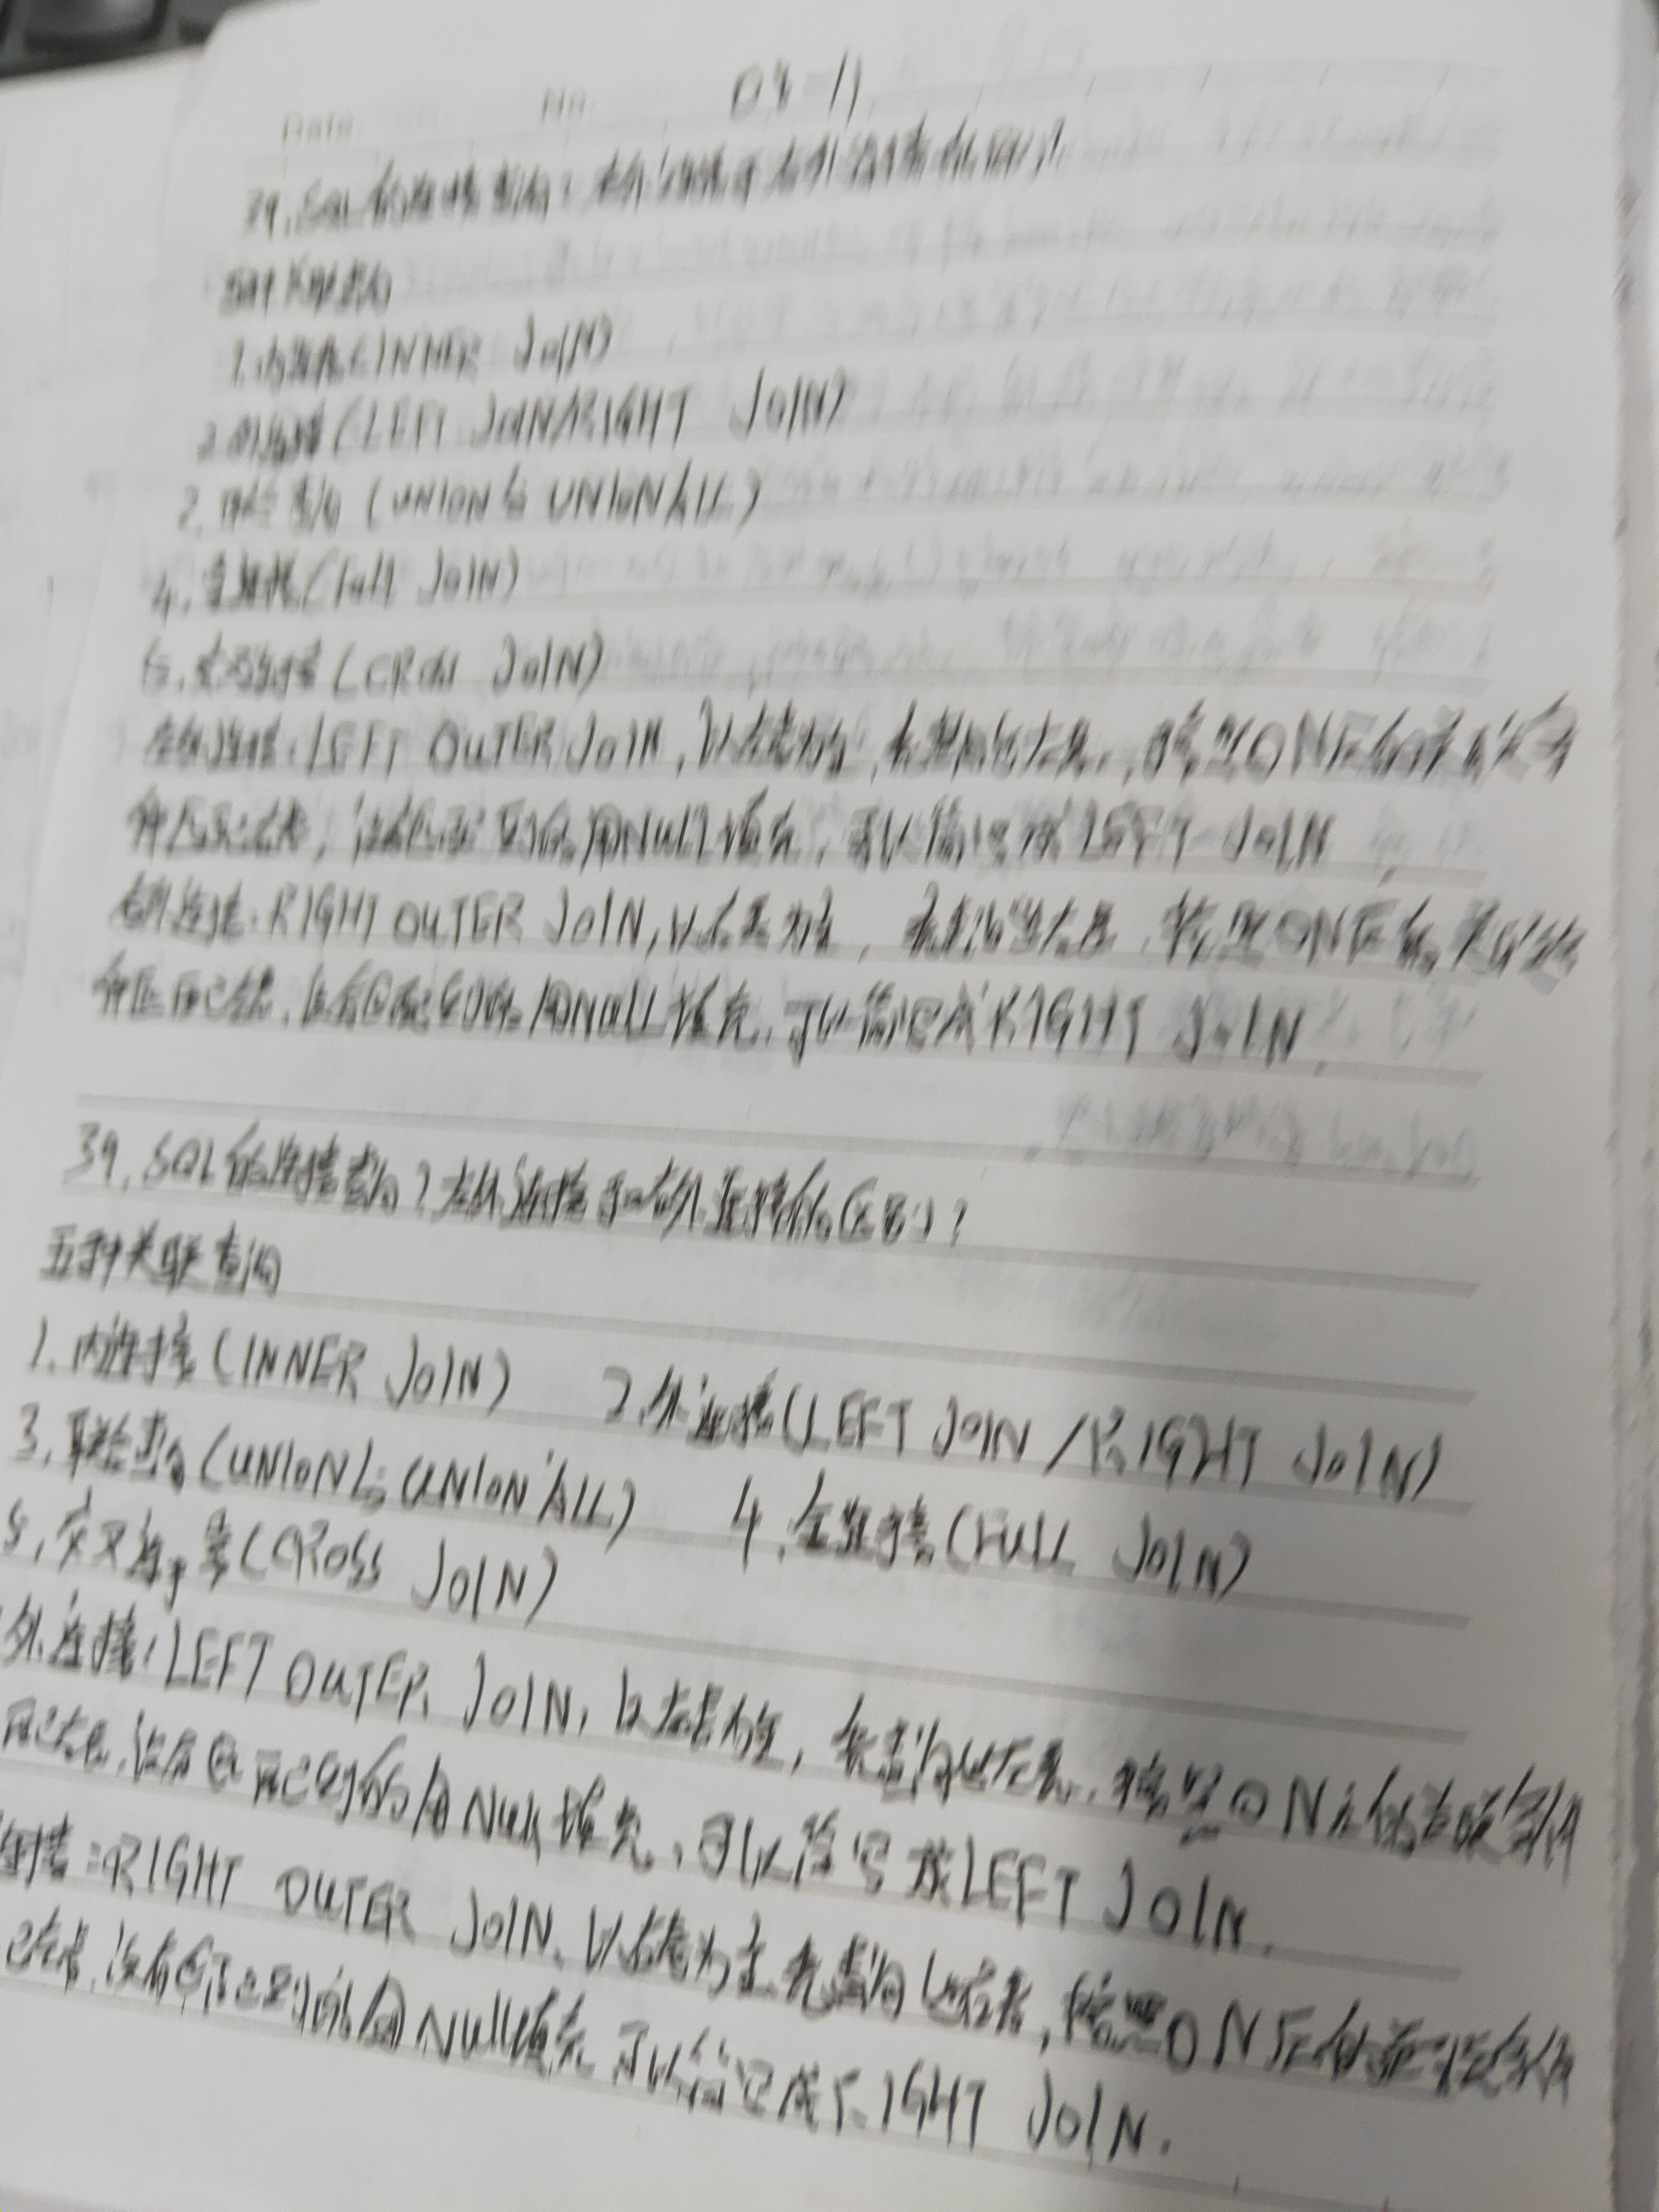 Date No. 03-11
39.SQL的连接查询?左外连接和右外连接的区别?
五种关联查询
1.内连接(INNER JOIN)
2.外连接(LEFT JOIN/RIGHT JOIN)
联合查询(UNION与UNION ALL)
4.全连接(Full JOIN)
5.交叉连接(CROSS JOIN)
左外连接:LEFT OUTER JOIN,以左表为主,先查询出左表,按照ON后的关联条件
件匹配右表,没有匹配到的用NULL填充,可以简写成LEFT JOIN
右外连接:RIGHT OUTER JOIN,以右表为主,先查询出右表,按照ON后的关联条
件匹配左表,没有匹配到的用NULL填充,可以简写成RIGHT JOIN.
39.SQL的连接查询?左外连接和右外连接的区别?
五种关联查询
1.内连接(INNER JOIN) 2.外连接(LEFT JOIN/RIGHT JOIN)
3.联合查询(UNION与UNION ALL) 4.全连接(FULL JOIN)
5.交叉连接(CROSS JOIN)
外连接:LEFT OUTER JOIN,以左表为主,先查询出左表,按照ON后的关联条件
配右表,没有匹配到的用Null填充,可以简写成LEFT JOIN.
连接:RIGHT OUTER JOIN,以右表为主,先查询出右表,按照ON后的关联条件
配左表,没有匹配到的用Null填充,可以简写成RIGHT JOIN.